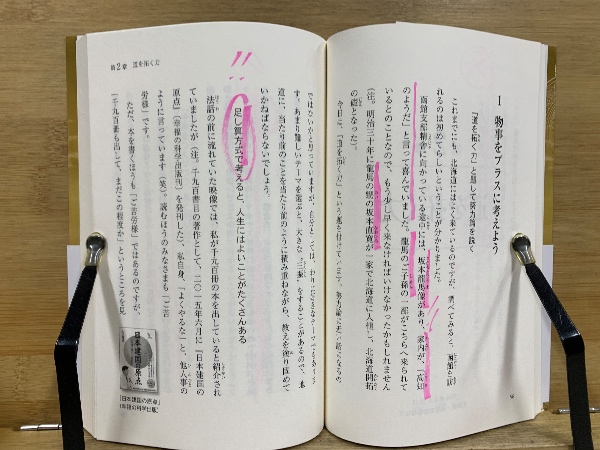 Ⅰ 物事をプラスに考えよう
「道を拓く力」と題して説力話を説く
これまでにも、北海道にはよく来ているのですが、調べてみると、「函館を訪
れるのは初めてらしい」ということが分かりました。
函館支部精舎に向かっている途中には、坂本龍馬像があり、家内が、「高知
のようだ」と言って喜んでいました。龍馬のご子孫の一部がこちらへ来られて
いるとのことなので、もう少し早く来なければいけなかったかもしれません
(注。明治三十年に龍馬の甥の坂本直寛が一家で北海道に入植し、北海道開拓
の礎となった)。
今日は、「道を拓く力」という題を付けています。
す。あまり難しいテーマを選ぶと、大きな“三振”をすることがあるので、本
道に、当たり前のことを当たり前のように積み重ねながら、教えを塗り固めて
いかねばならないでしょう。
足し算方式で考えると、人生にはよいことがたくさんある
法話の前に流れていた映像では、私が千九百冊の本を出していると紹介され
ていましたが(注。千九百冊目の著作として、二〇一五年六月に『日本建国の
原点』〔幸福の科学出版刊〕を発刊した)、私自身、「よくやるな」と、他人事の
ように言っています(笑)。読むほうのみなさまも「ご苦
労様」です。
ただ、本を書くほうも「ご苦労様」ではあるのですが、
「千九百冊も出して、まだこの程度か」というところを見
第2章 道を拓く力
日本建国の原点
『日本建国の原点』
(幸福の科学出版)